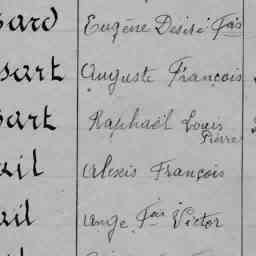 sard Eugène Désiré Fois
sart Auguste François
sart Raphaël Louis
Pierre
ail Alexis François
ail Ange Fois Victor